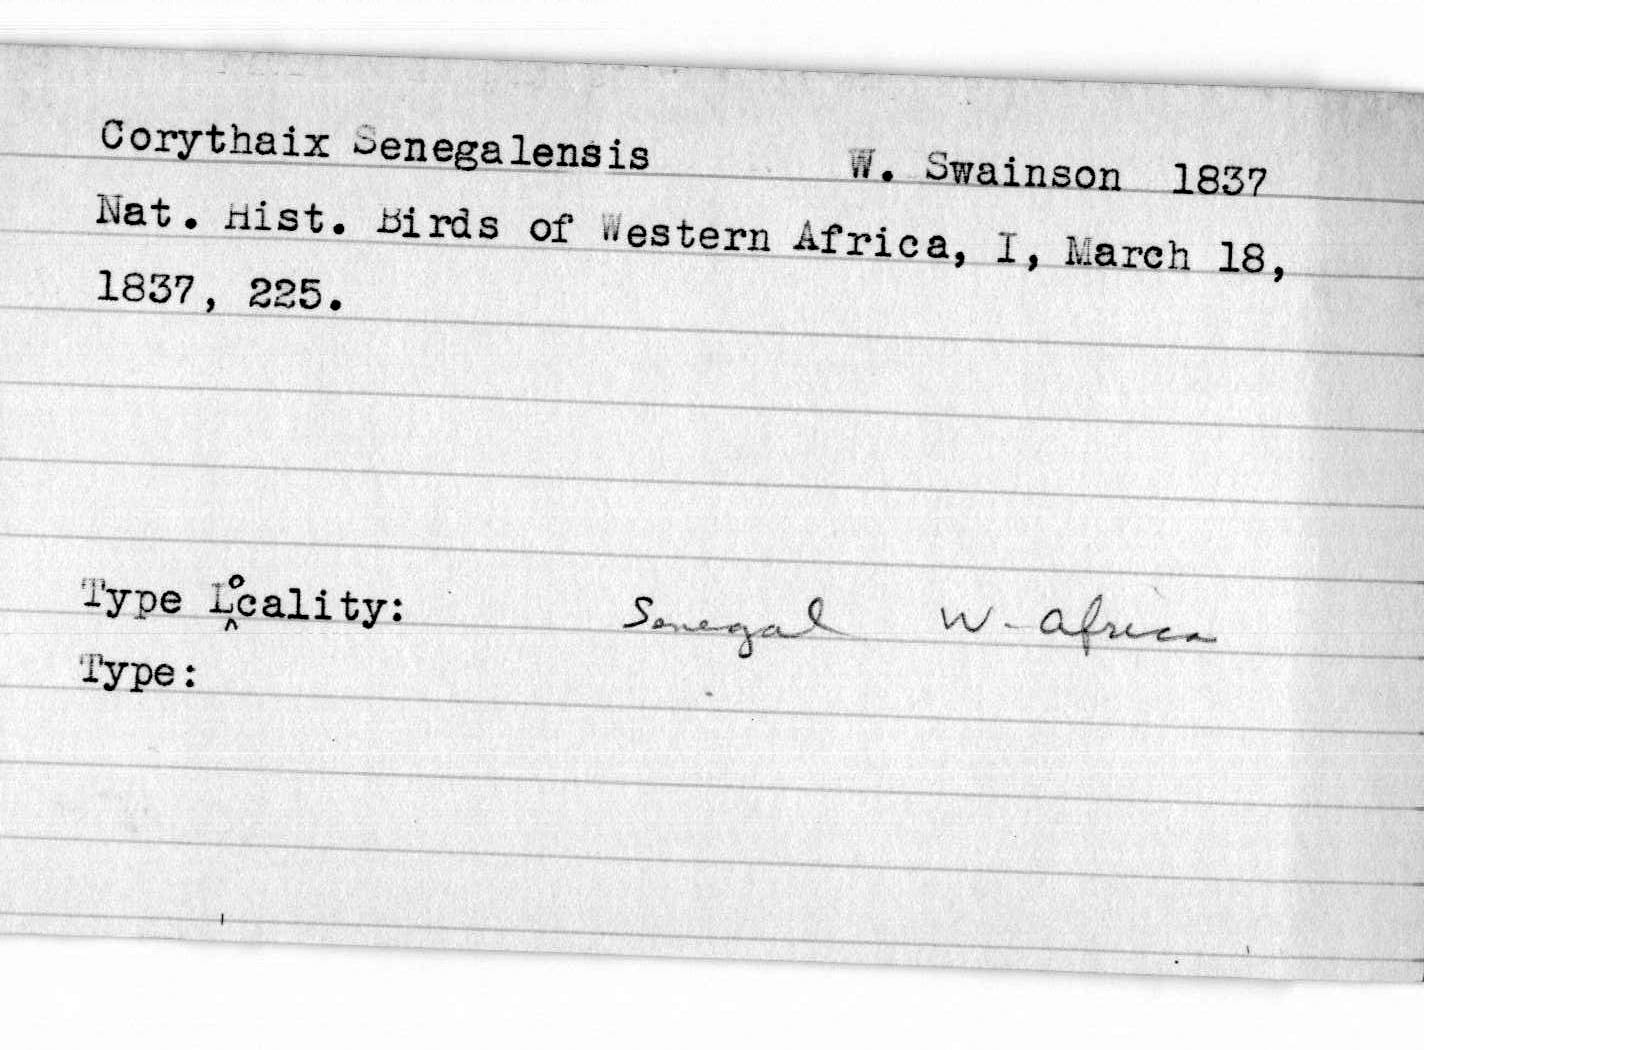 Corythaix Senegalensis W. Swainson 1837
Nat. Hist. Birds of Western Africa, I, March 18,
1837, 225.
Type Locality: Senegal W. Africa
Type: